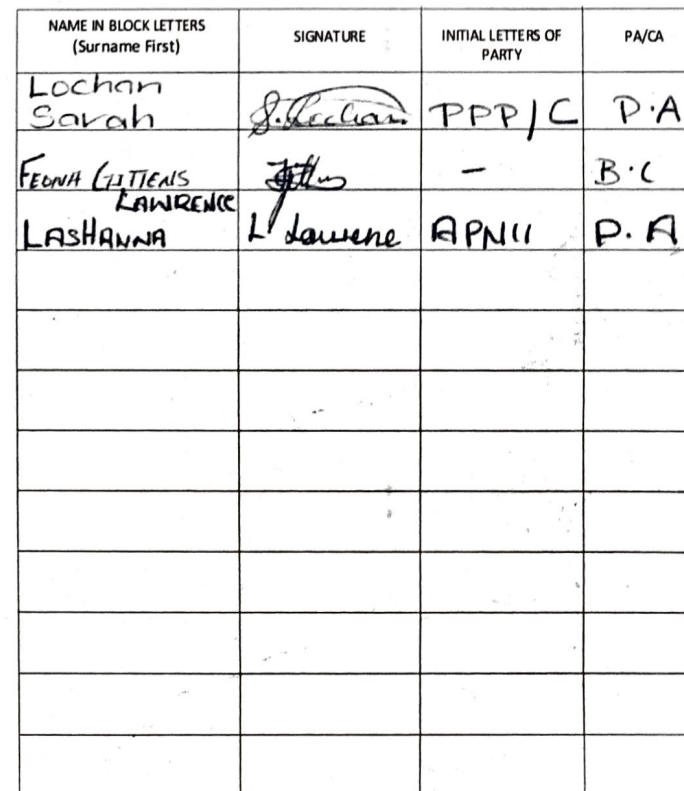 NAME IN BLOCK LETTERS
(Surname First)
SIGNATURE
INITIAL LETTERS OF
PARTY
PA/CA
Lochan
Sarah S. Lochan PPP/C P.A
FEONA GITTENS - B.C
LAWRENCE
LASHANNA L Lawrene APNU P.A